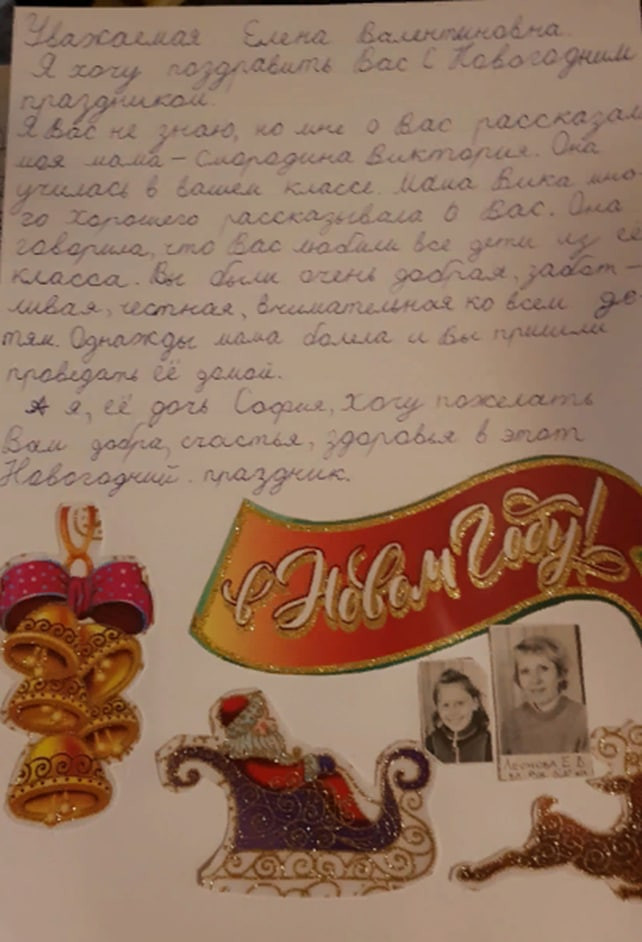 Уважаемая Елена Валентиновна.
Я хочу поздравить Вас с Новогодним
праздником.
Я Вас не знаю, но мне о Вас рассказал
моя мама - Смородина Виктория. Она
училась в вашем классе. Мама Вика мно-
го хорошего рассказывала о Вас. Она
говорила, что Вас любили все дети из её
класса. Вы были очень добрая, забот-
ливая, честная, внимательная ко всем де-
тям. Однажды мама болела и Вы пришли
проведать её домой.
А я, её дочь София, хочу пожелать
Вам добра, счастья, здоровья в этот
Новогодний праздник.
в Новом Году!
Леонова Е.В.